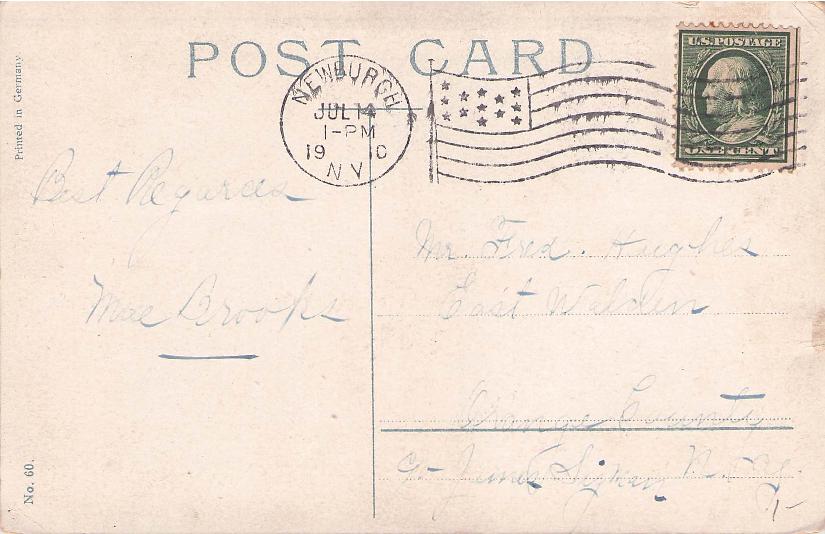 POST CARD
Printed in Germany.
NEWBURGH
JUL 14
1-PM
1910
N Y
U.S. POSTAGE
ONE CENT
Best Regards
Mae Brooks
Mr Fred. Hughes
East Walden
Orange County
James N. Y.
No. 60.